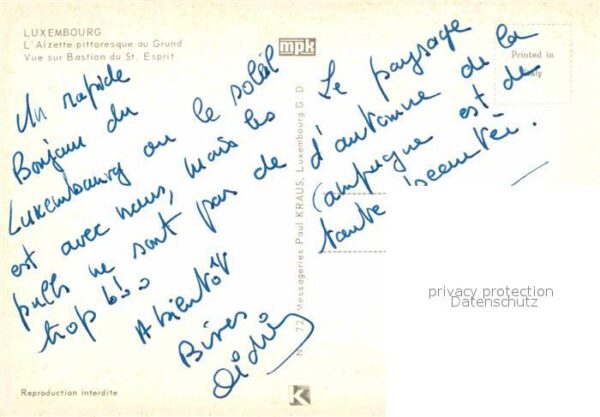 LUXEMBOURG
L'Alzette pittoresque au Grund
Vue sur Bastion du St. Esprit
mpk
Printed in
Italy
Un rapide
Bonjour du
Luxembourg ou le soleil
est avec nous, mais les
pulls ne sont pas de
trop !!!
A bientôt
Bises
Le paysage
d'automne de la
campagne est de
toute beauté.
Messageries Paul KRAUS, Luxembourg G. D.
privacy protection
Datenschutz
Reproduction interdite
K